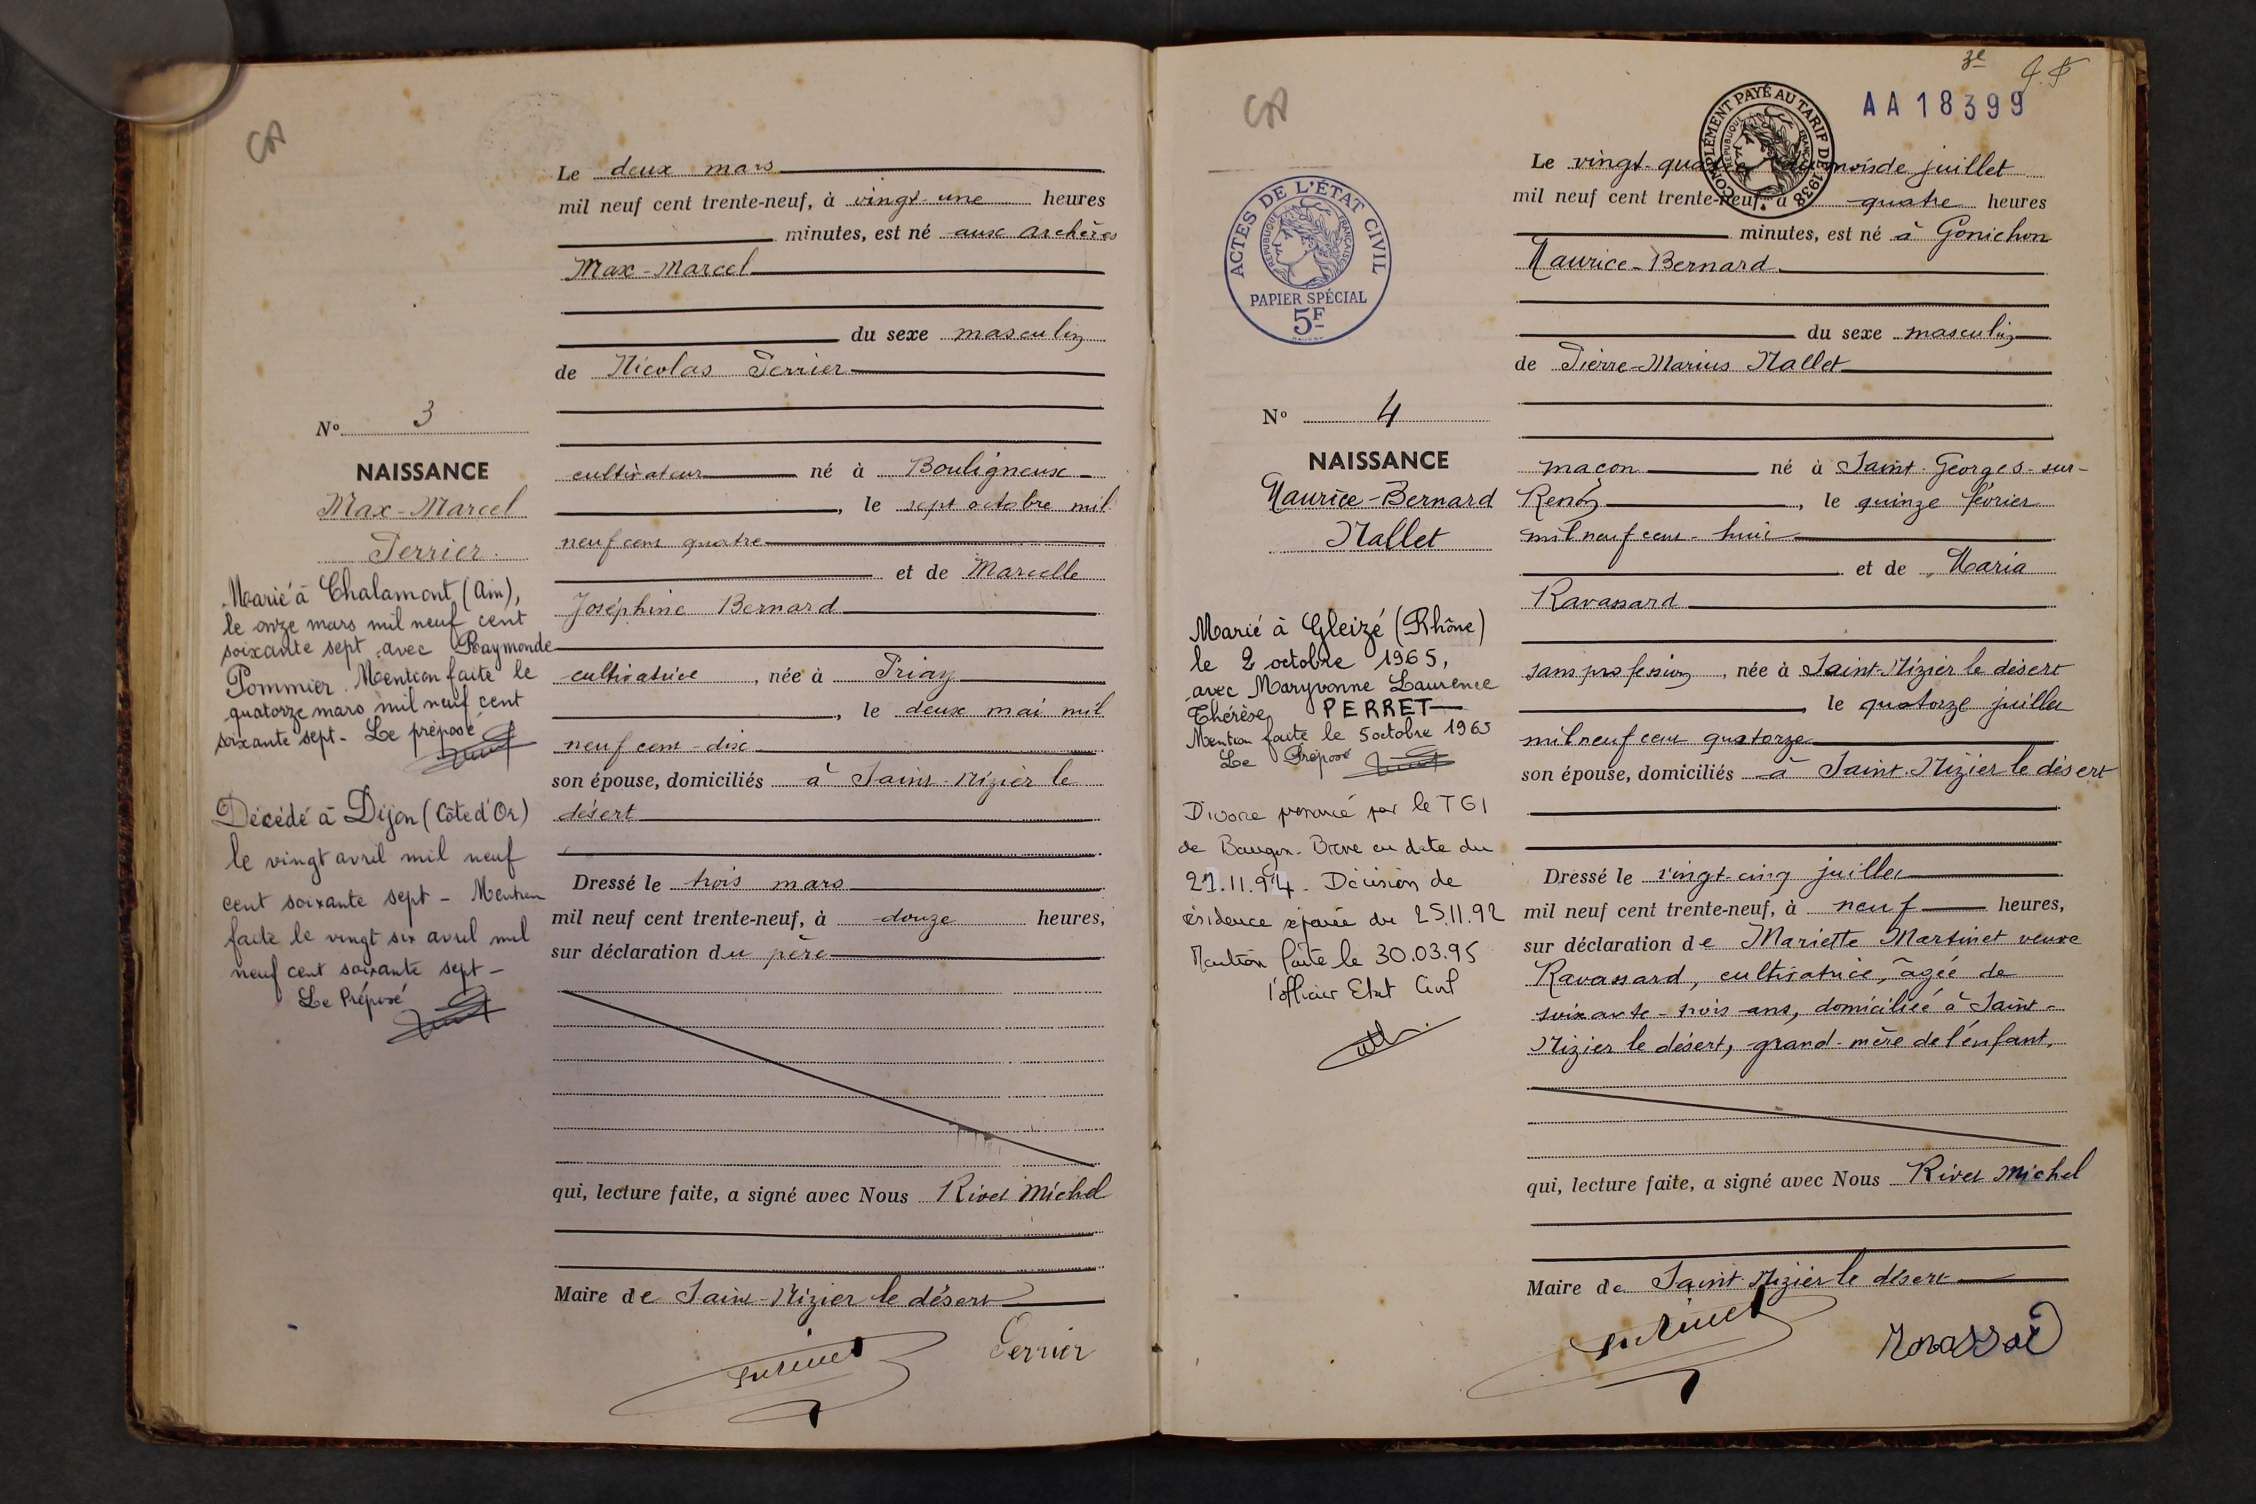 CA
Le deux mars
mil neuf cent trente-neuf, à vingt-une heures
minutes, est né aux Archères
Max-Marcel
du sexe masculin
de Nicolas Perrier
N° 3
NAISSANCE
Max-Marcel
Perrier.
cultivateur né à Bouligneux
, le sept octobre mil
neuf cent quatre
et de Marcelle
Joséphine Bernard
cultivatrice , née à Priay
, le deux mai mil
neuf cent-dix
son épouse, domiciliés à Saint-Nizier le
désert
Dressé le trois mars
mil neuf cent trente-neuf, à douze heures,
sur déclaration du père
qui, lecture faite, a signé avec Nous Rivet Michel
Maire de Saint-Nizier le désert
Perrier
Marié à Chalamont (Ain),
le onze mars mil neuf cent
soixante sept avec Raymonde
Pommier. Mention faite le
quatorze mars mil neuf cent
soixante sept - Le préposé
Décédé à Dijon (Côte d'Or)
le vingt avril mil neuf
cent soixante sept - Mention
faite le vingt six avril mil
neuf cent soixante sept -
Le Préposé
CA
3e
AA18399
COMPLÉMENT PAYÉ AU TARIF DE 1938
RÉPUBLIQUE FRANÇAISE
ACTES DE L'ÉTAT CIVIL
RÉPUBLIQUE FRANÇAISE
PAPIER SPÉCIAL
5F
Le vingt-qua du mois de juillet
mil neuf cent trente-neuf, à quatre heures
minutes, est né à Gonichon
Maurice-Bernard
du sexe masculin
de Pierre-Marius Mallet
N° 4
NAISSANCE
Maurice-Bernard
Mallet
maçon né à Saint-Georges-sur-
Renon , le quinze février
mil neuf cent-huit
et de Maria
Ravassard
sans profession , née à Saint-Nizier le désert
, le quatorze juillet
mil neuf cent quatorze
son épouse, domiciliés à Saint-Nizier le désert
Dressé le vingt-cinq juillet
mil neuf cent trente-neuf, à neuf heures,
sur déclaration de Mariette Martinet veuve
Ravassard, cultivatrice, âgée de
soixante-trois ans, domiciliée à Saint-
Nizier le désert, grand-mère de l'enfant.
qui, lecture faite, a signé avec Nous Rivet Michel
Maire de Saint-Nizier le désert
Marié à Gleizé (Rhône)
le 2 octobre 1965,
avec Maryvonne Laurence
Thérèse PERRET
Mention faite le 5 octobre 1965
Le Préposé
Divorce prononcé par le TGI
de Bourg en Bresse en date du
21.11.94. Décision de
résidence séparée du 25.11.92
Mention faite le 30.03.95
l'officier Etat Civil